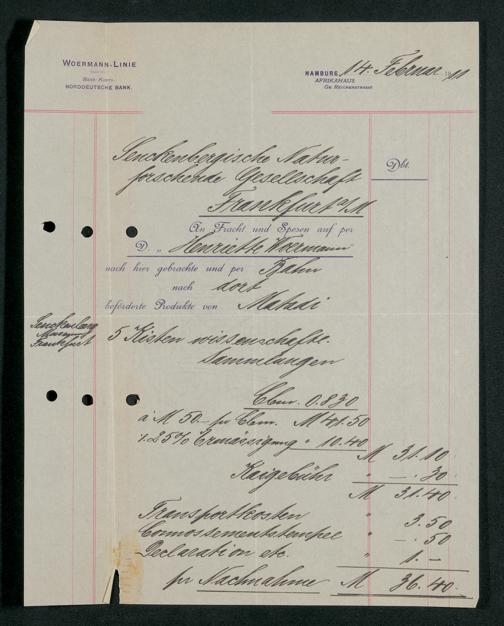 WOERMANN-LINIE
Bank-Konto:
NORDDEUTSCHE BANK.
HAMBURG, 14. Februar 1911
AFRIKAHAUS
GR. REICHENSTRASSE
Senckenbergische Natur-
forschende Gesellschaft
Frankfurt a/M
Dbt.
An Fracht und Spesen auf per
D. „ Henriette Woermann
nach hier gebrachte und per Bahn
nach dort
beförderte Produkte von Matadi
Senckenberg
Museum
Frankfurt
5 Kisten wissenschaftl.
Sammlungen
Cbm. 0.830
à M 50.- pr Cbm. M 41.50
% 25% Ermässigung " 10.40
M 31.10
Kaigebühr " -.30
M 31.40
Transportkosten " 3.50
Connossementstempel " -.50
Declaration etc. " 1.-
pr Nachnahme M 36.40.